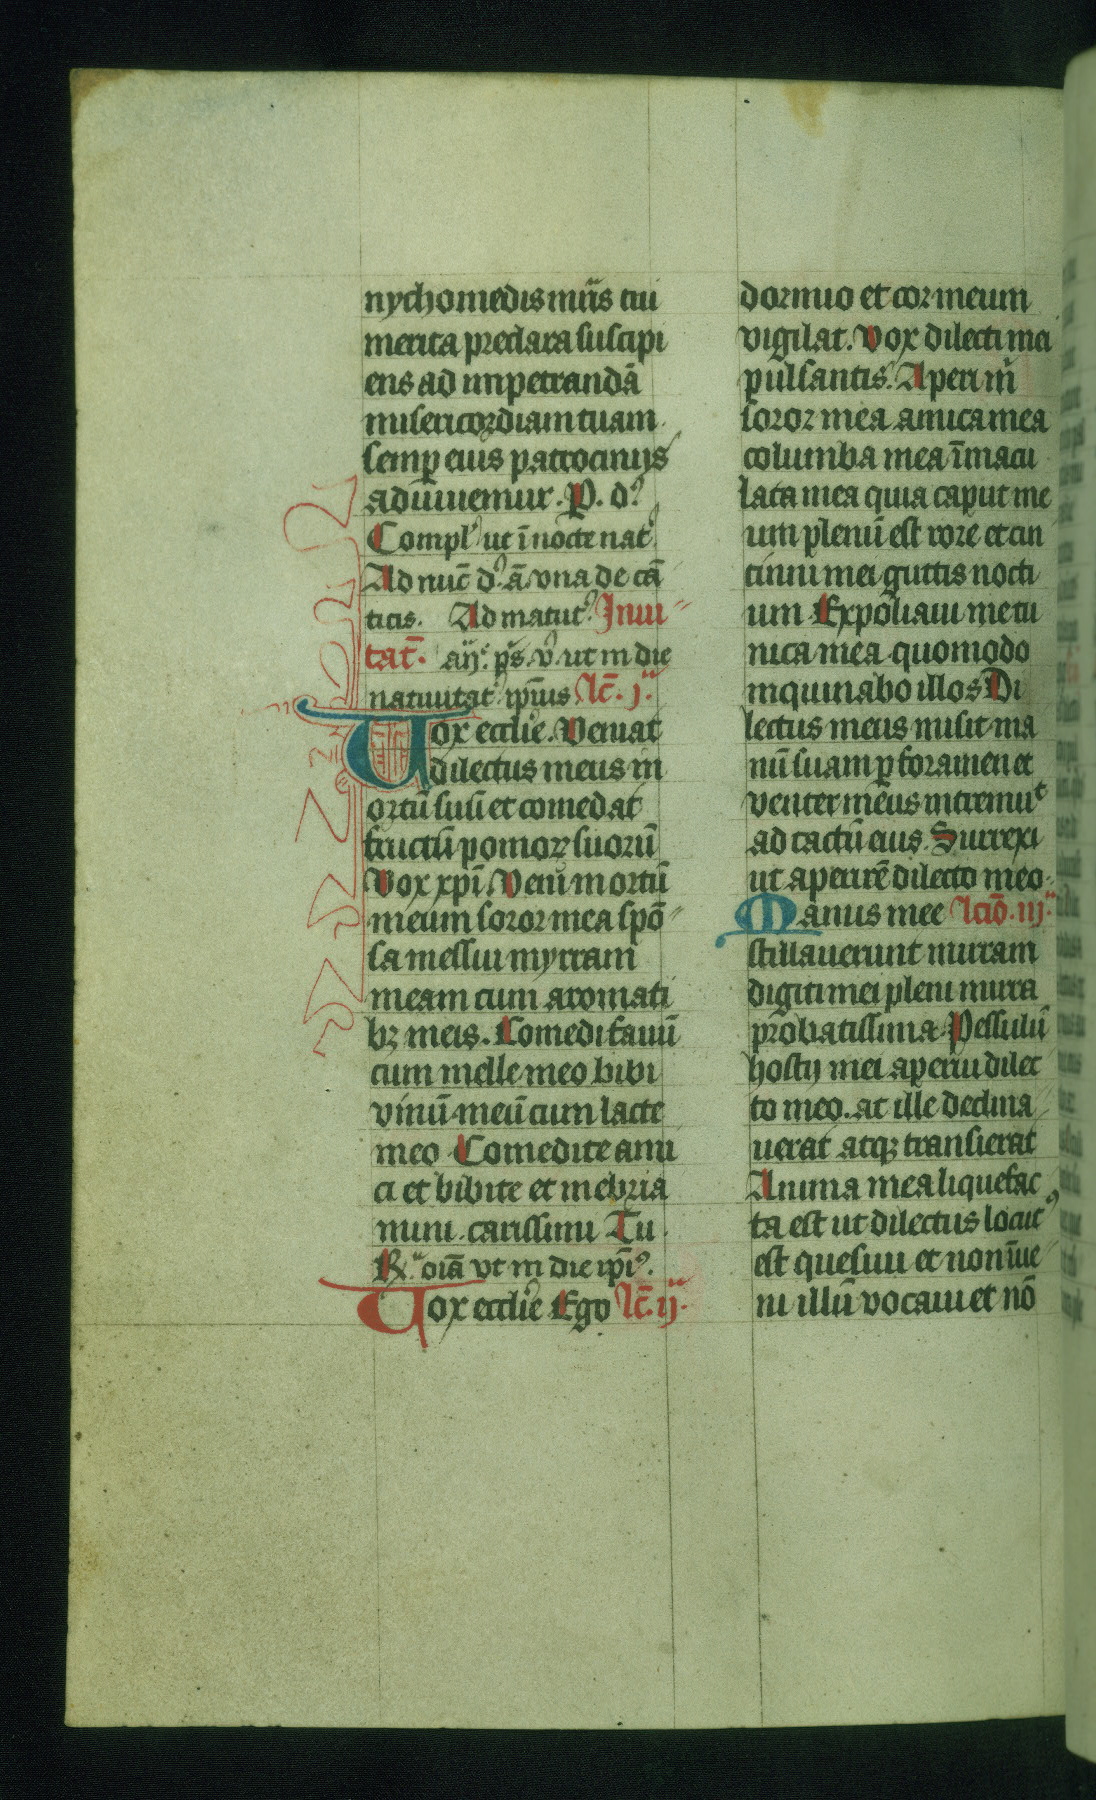 nychomedis mr̄is tui
merita preclara suscipi
ens ad impetrandā
misericordiam tuam
semp̱ eius patrocinijs
adiuuemur. P. d⁹
Compl⁹ ut ī nocte nat⁹
Ad nuc̄ d⁹ ā vna de cā
ticis. Ad matut⁹ Inui
tat̄. aij⁹ p̄s. v⁹ ut in die
natiuitat⁹ ip̄ius Lc̄. j.
Vox eccli̅e. Veniat
dilectus meus in
ortū suū et comedat
fructū pomoꝝ suorū
Vox xp̄i Veni in ortū
meum soror mea spō
sa messui myrram
meam cum aromati
bꝫ meis. Comedi fauū
cum melle meo bibi
vinū meū cum lacte
meo Comedite ami
ci et bibite et inebria
mini carissimi Tu
R̷. oīa vt in die ip̄i⁹.
Vox eccli̅e Ego Lc̄. ij.
dormio et cor meum
vigilat. Vox dilecti mei
pulsantis. Aperi m̄
soror mea amica mea
columba mea īmacu
lata mea quia caput me
um plenū est rore et cin
cinni mei guttis nocti
um Expoliaui me tu
nica mea quomodo
inquinabo illos Di
lectus meus misit ma
nū suam ꝑ foramen et
venter meus intremut
ad tactū eius. Surrexi
ut aperirē dilecto meo
Manus mee Lc̄io. iij.
stillauerunt mirram
digiti mei pleni mirra
probatissima Pessulū
hostij mei aperui dilec
to meo. at ille declina
uerat atqꝫ transierat
Anima mea liquefac
ta est ut dilectus locut⁹
est quesiui et non īue
ni illū vocaui et nō